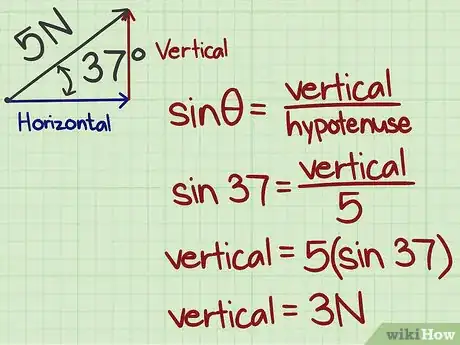 5N
37°
Vertical
Horizontal
sinθ = vertical / hypotenuse
sin 37 = vertical / 5
vertical = 5(sin 37)
vertical = 3N
wikiHow